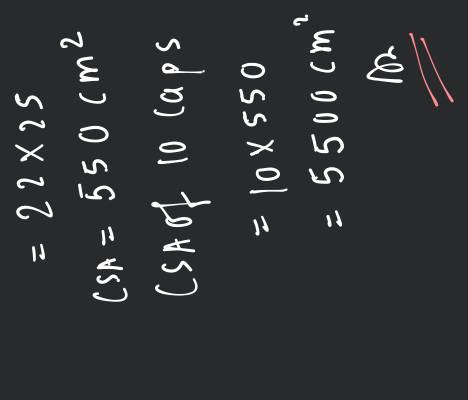 = 22 X 25
CSA = 550 cm²
CSA of 10 Caps
= 10 X 550
= 5500 cm²